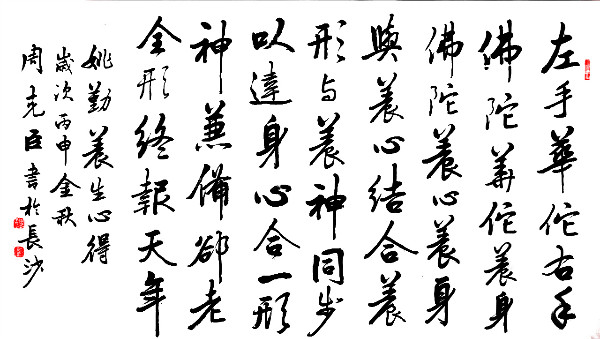 左手華佗右手
佛陀華佗養身
佛陀養心養身
與養心結合養
形与養神同步
以達身心合一形
神兼備卻老
全形終報天年
姚勤養生心得
歲次丙申金秋
周克臣書於長沙